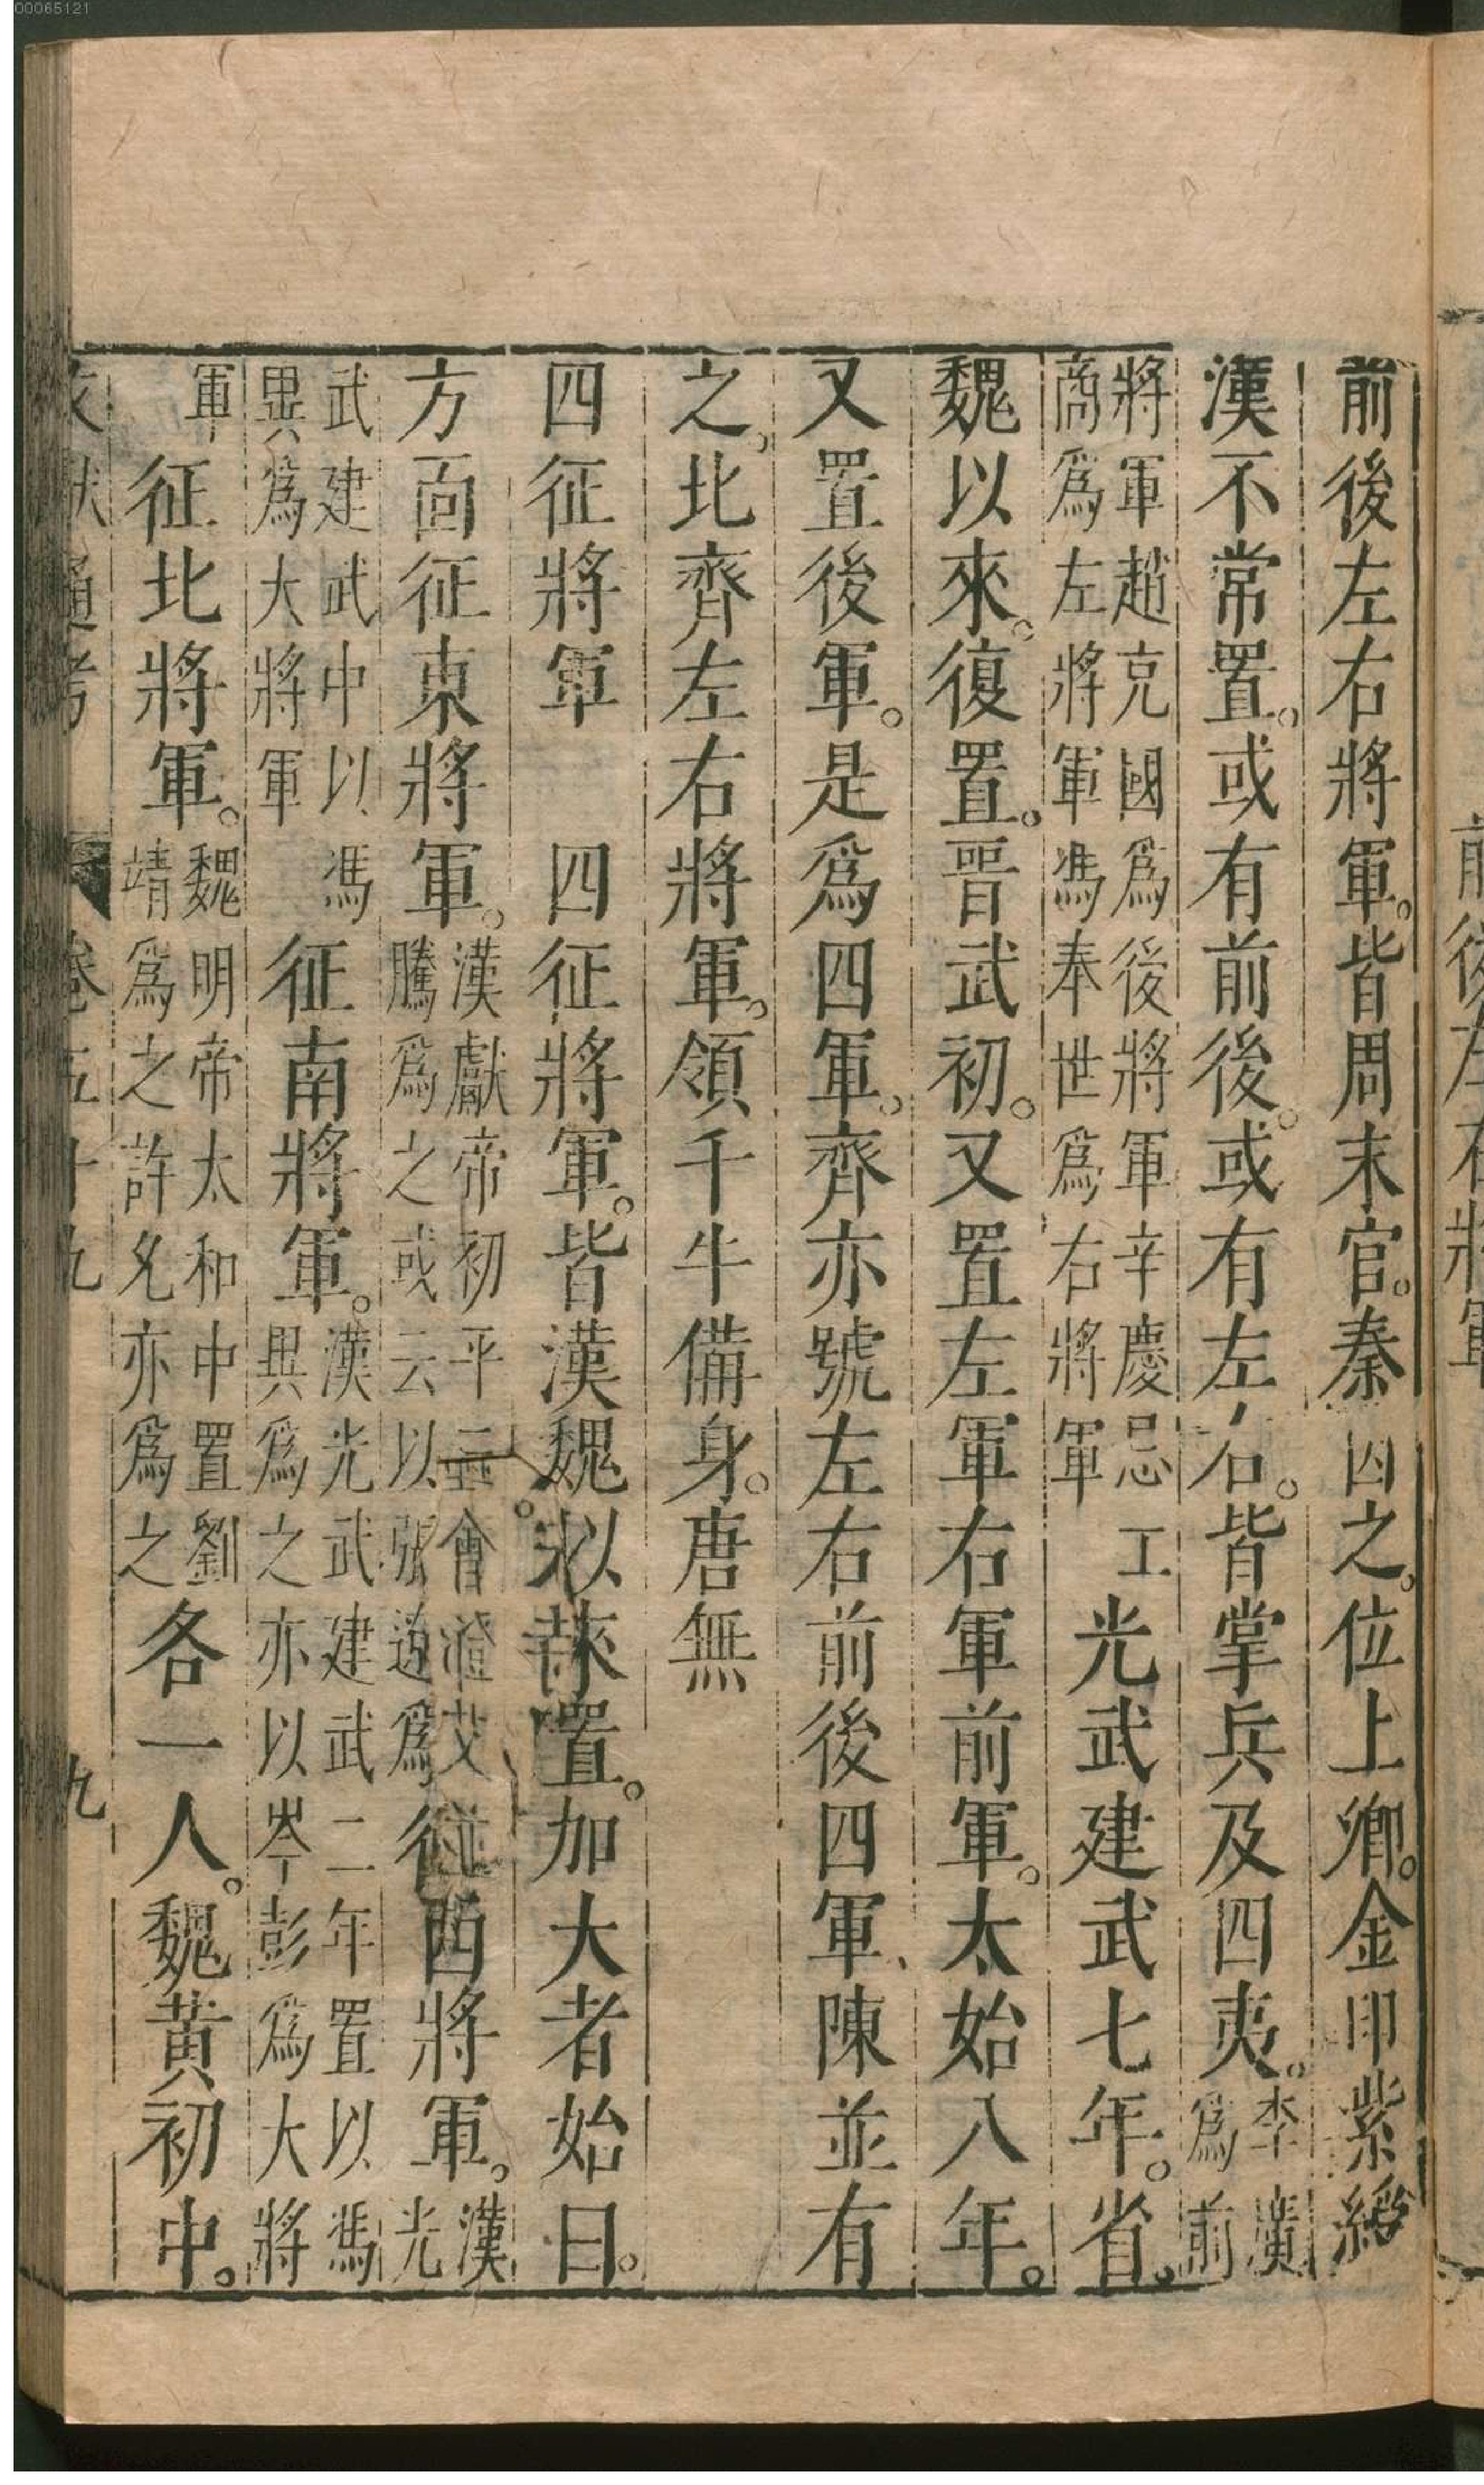 00065121
前後左右將軍。皆周末官。秦因之。位上卿。金印紫綬
漢不常置。或有前後。或有左右。皆掌兵及四夷。李廣爲前
將軍趙充國爲後將軍辛慶忌商爲左將軍馮奉世爲右將軍光武建武七年。省。
魏以來。復置。晉武初。又置左軍右軍前軍。太始八年。
又置後軍。是爲四軍。齊亦號左右前後四軍、陳並有
之。北齊左右將軍。領千牛備身。唐無
四征將軍　四征將軍。皆漢魏以來置。加大者始曰。
方面征東將軍。漢獻帝初平三騰爲之或云以張遼爲征西將軍。漢光
武建武中以馮異爲大將軍征南將軍。漢光武建武二年置以馮異爲之亦以岑彭爲大將
軍征北將軍。魏明帝太和中置劉靖爲之許允亦爲之各一人。魏黃初中。
文獻通考　卷五十九　九
前後左右將軍